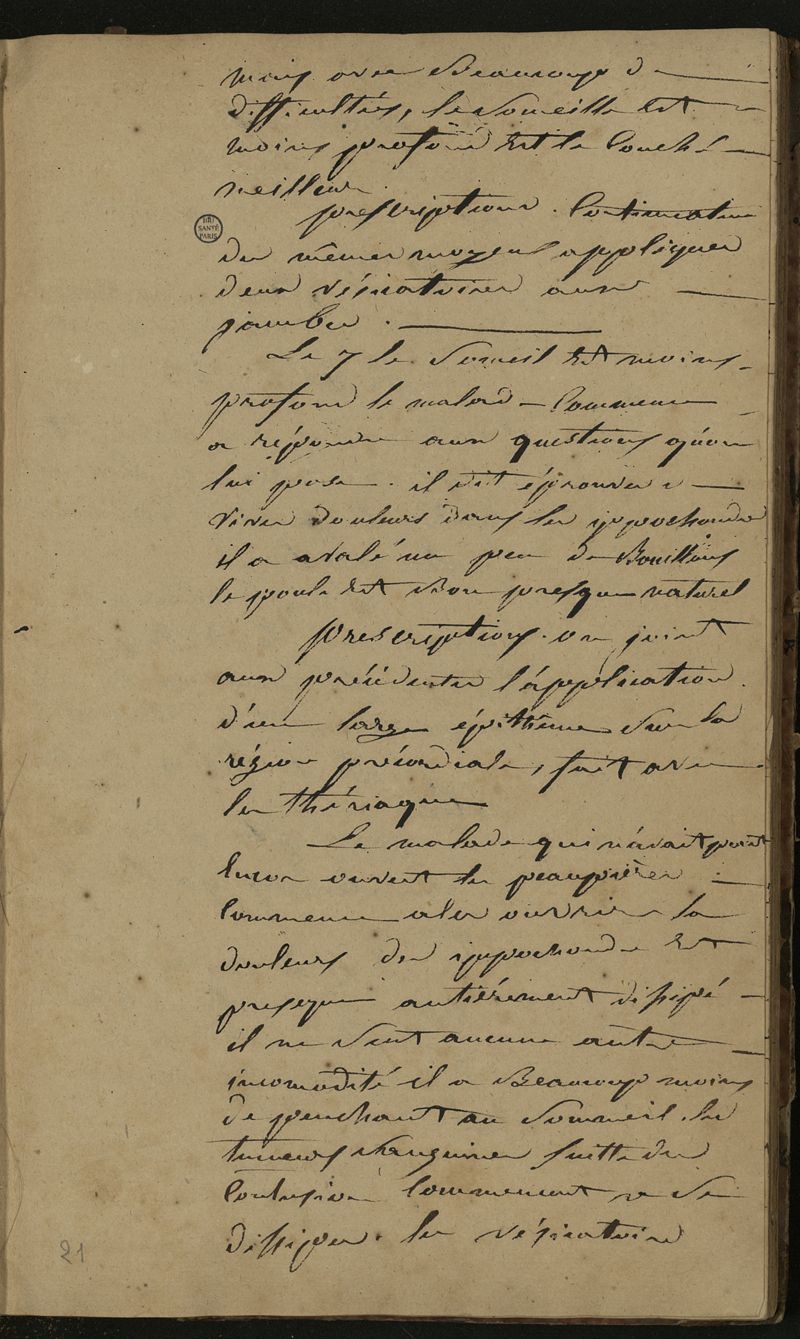 mais avec Beaucoup de
difficultés, le Someille Est
moins profond Est la bouche
meilleur
BIU
SANTÉ
PARIS
prescriptions. Continuation
des mêmes moyens appliquer
deux vésicatoires aux
jambes.
Le 7 le Someil Est moins
profond le malade Commence
a répondre aux questions qu'on
lui pose. il dit éprouver de
vives douleurs dans les ypochondre
il a avalé un peu de Bouillons
le pouls Est Bon presque naturel
prescriptions. on joint
aux précédentes l'application
d'un large épithème Sur la
région précordiale, fait avec
la thériaque
Le malade qui n'avait point
Encor ouvert les peaupières
Commence a les ouvrir la
douleurs des ypochondre Est
presque antièrement dissipé
il ne Sent aucune autre
incomodité il a Beaucoup moins
de penchant au Sommeil. les
tumeurs Sanguines suitte des
Contusion Commencent a Se
dissiper. les vésicatoires
21